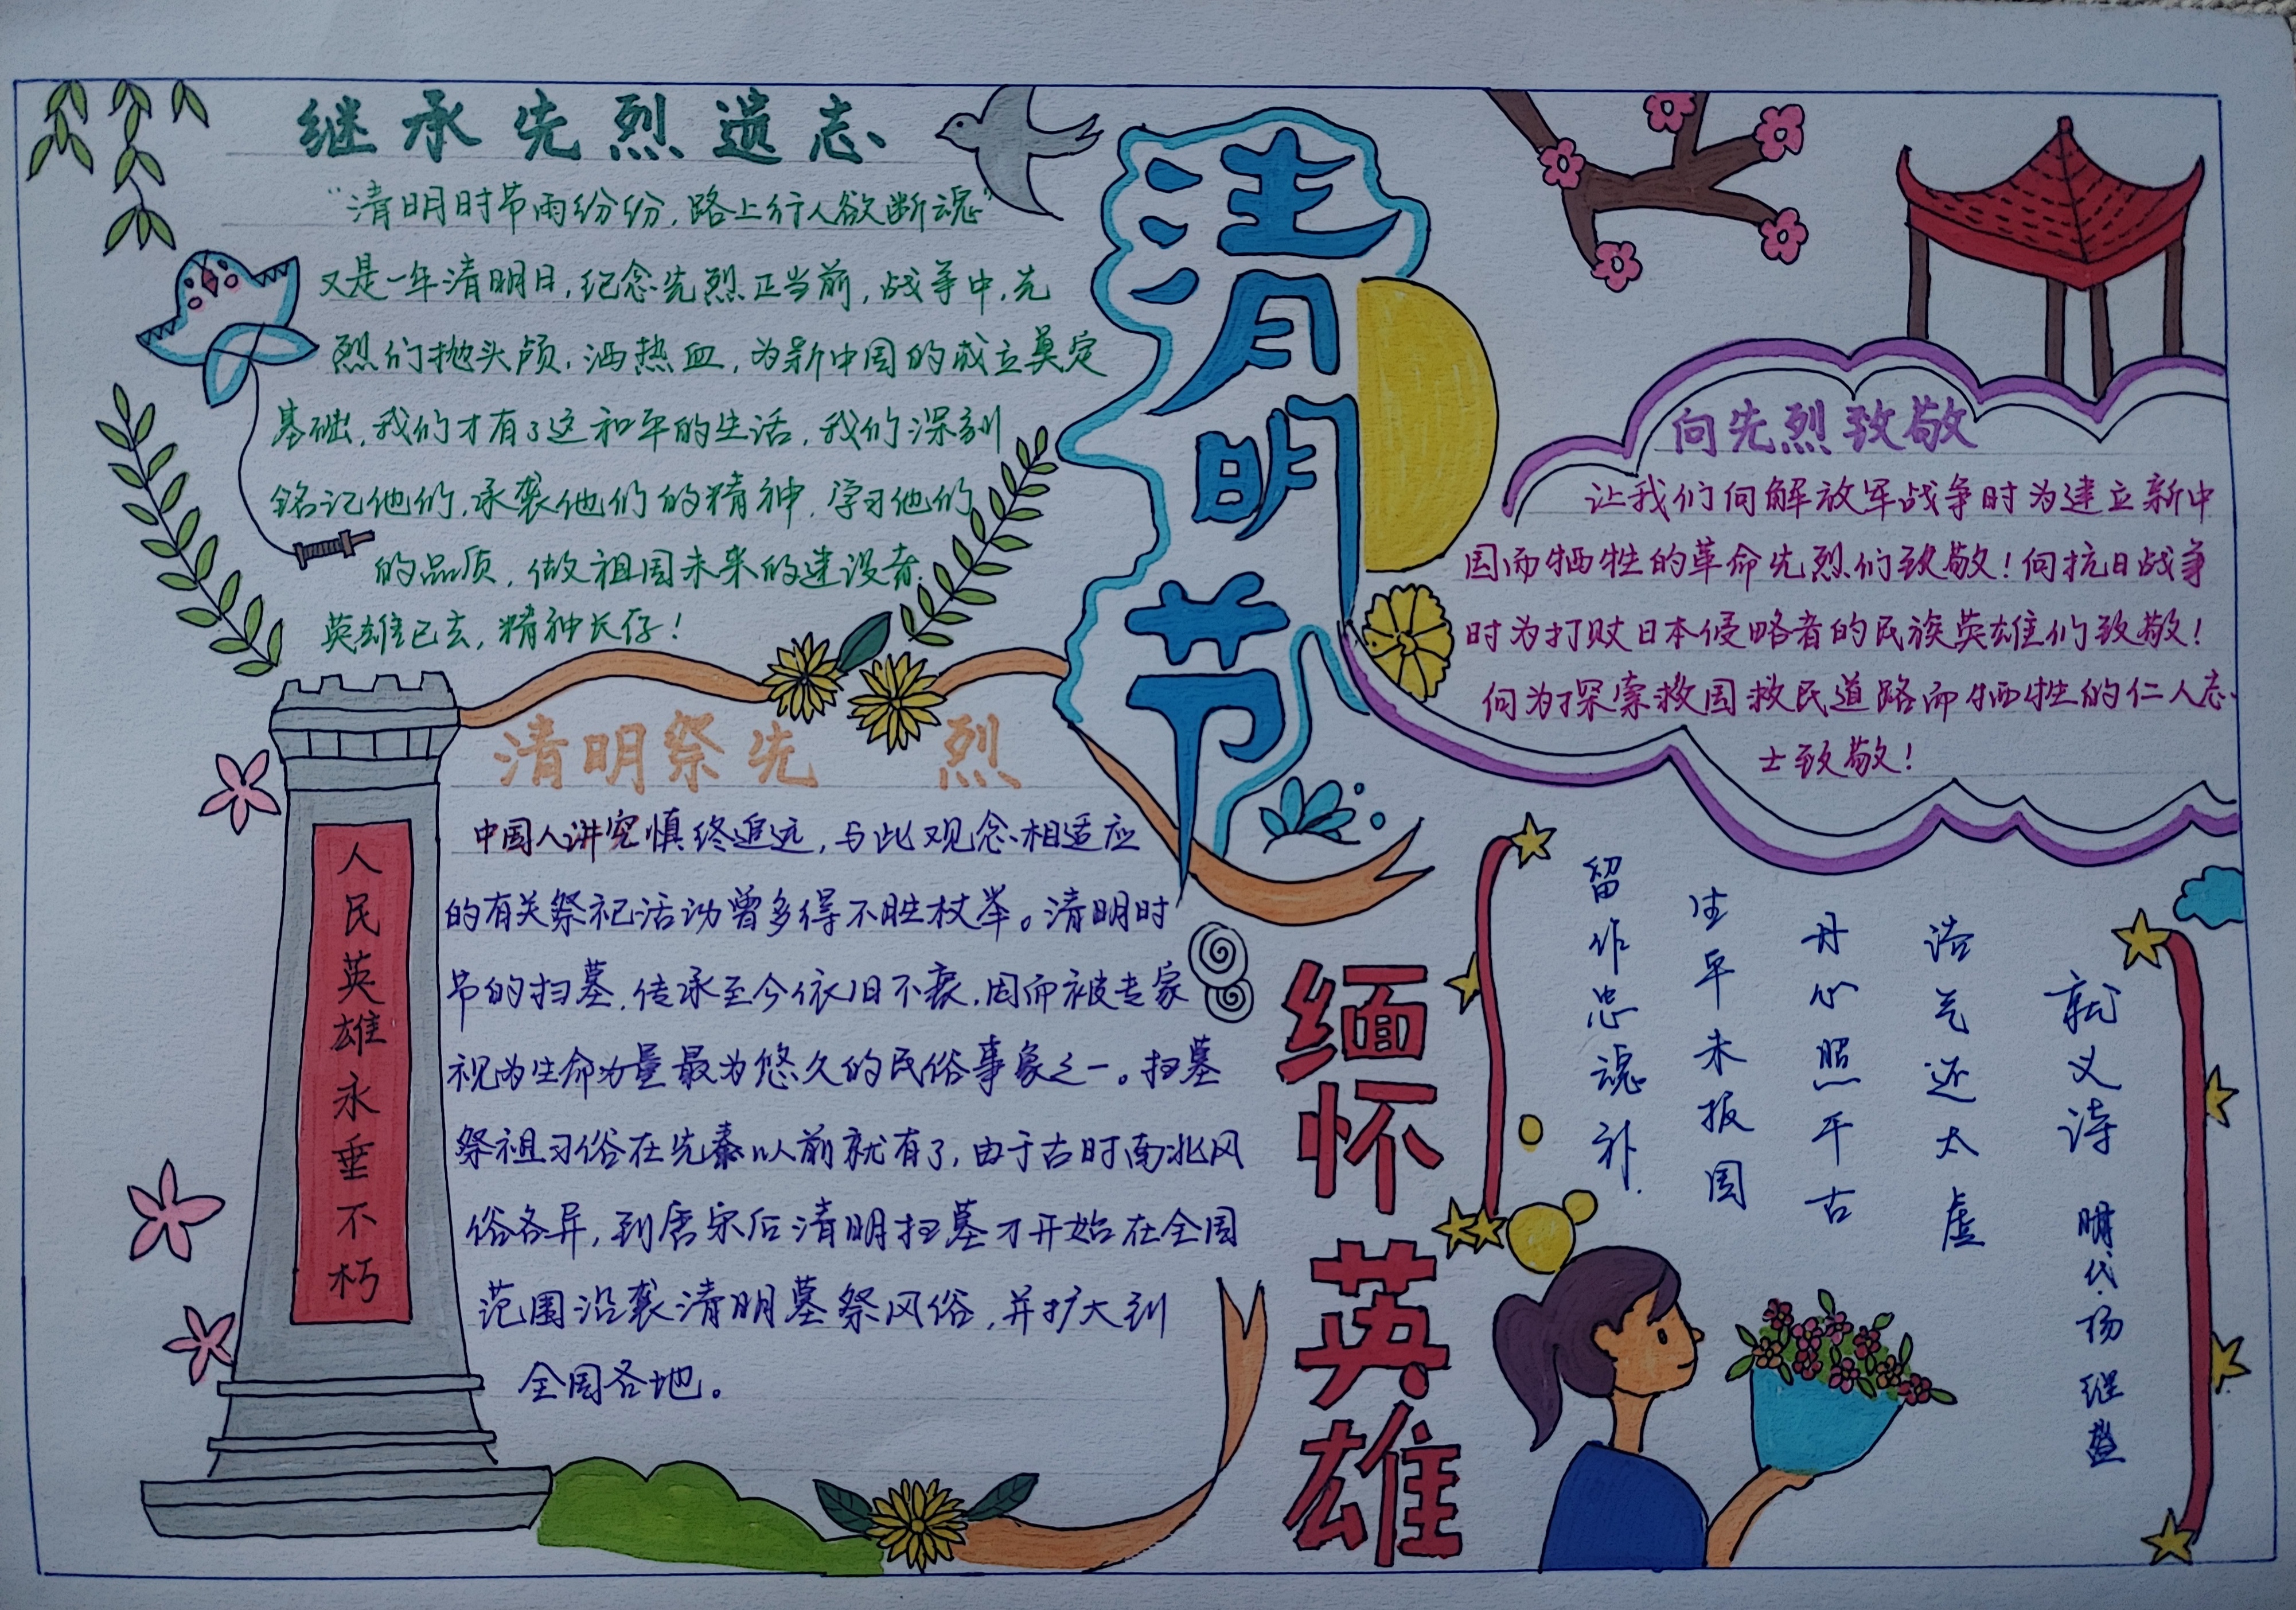 继承先烈遗志
“清明时节雨纷纷,路上行人欲断魂”
又是一年清明日,纪念先烈正当前,战争中,先
烈们抛头颅,洒热血,为新中国的成立奠定
基础,我们才有了这和平的生活,我们深刻
铭记他们,承袭他们的精神,学习他们
的品质,做祖国未来的建设者.
英雄已去,精神长存!
清明节
向先烈致敬
让我们向解放军战争时为建立新中
国而牺牲的革命先烈们致敬!向抗日战争
时为打败日本侵略者的民族英雄们致敬!
向为探索救国救民道路而牺牲的仁人志
士致敬!
人民英雄永垂不朽
清明祭先烈
中国人讲究慎终追远,与此观念相适应
的有关祭祀活动曾多得不胜枚举。清明时
节的扫墓,传承至今依旧不衰,因而被专家
视为生命力量最为悠久的民俗事象之一。扫墓
祭祖习俗在先秦以前就有了,由于古时南北风
俗各异,到唐宋后清明扫墓才开始在全国
范围沿袭清明墓祭风俗,并扩大到
全国各地。
缅怀英雄
就义诗 明代杨继盛
浩气还太虚
丹心照千古
生平未报国
留作忠魂补.